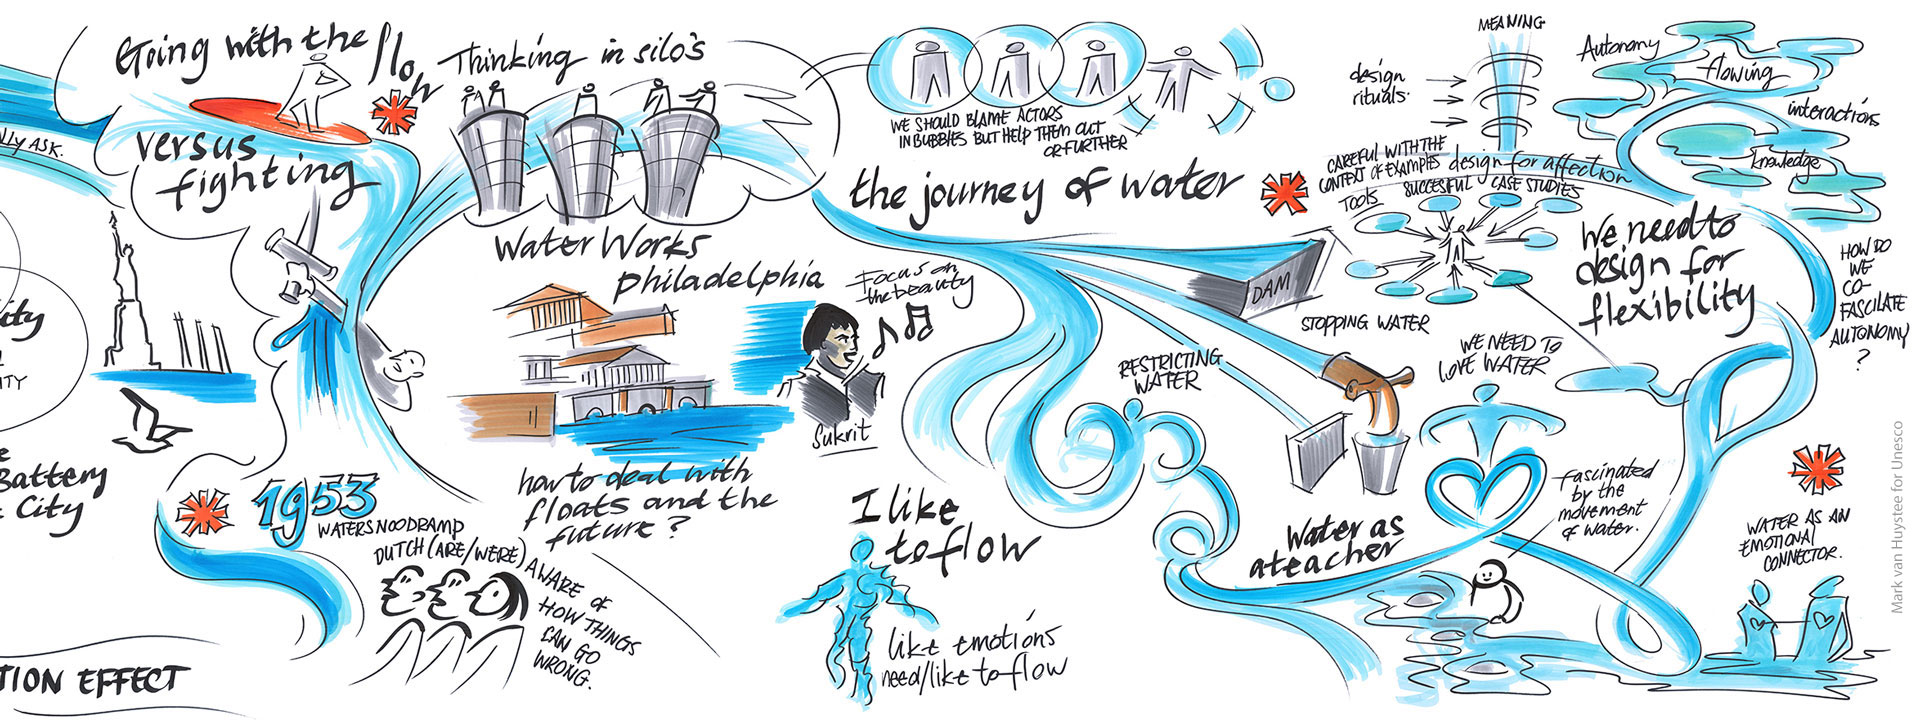 NLY ASK.
City
ITY
Battery
City
TION EFFECT
Going with the flow
versus
fighting
Thinking in silo's
Water Works
Philadelphia
Focus on
the beauty
Sukrit
how to deal with
floats and the
future?
1953
WATERSNOODRAMP
DUTCH (ARE/WERE)
AWARE OF
HOW THINGS
CAN GO
WRONG.
WE SHOULD BLAME ACTORS
IN BUBBLES BUT HELP THEM OUT
OR FURTHER
the journey of water
DAM
STOPPING WATER
RESTRICTING
WATER
WE NEED TO
LOVE WATER
I like
to flow
like emotions
need/like to flow
Water as
a teacher
MEANING
design
rituals.
CAREFUL WITH THE
CONTEXT OF EXAMPLES
TOOLS
SUCCESFUL CASE STUDIES
design for affection
Autonomy
flowing
interactions
knowledge
We need to
design for
flexibility
HOW DO
WE
CO-
FASCILATE
AUTONOMY
?
fascinated
by the
movement
of water.
WATER AS AN
EMOTIONAL
CONNECTOR.
Mark van Huystee for Unesco